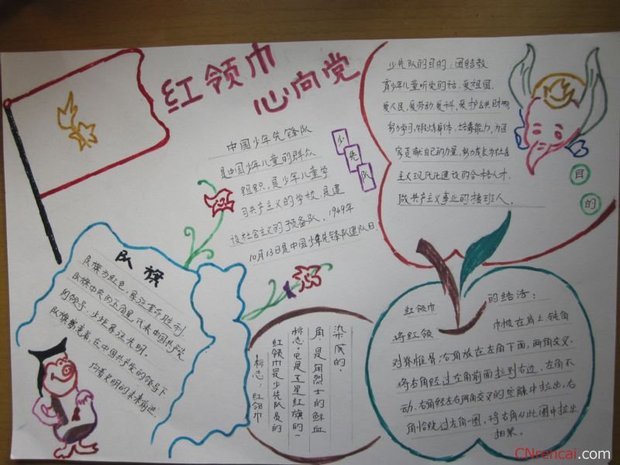 红领巾
心向党
少先队
中国少年先锋队
是中国少年儿童的群众
组织,是少年儿童学
习共产主义的学校,是建
设社会主义的预备队。1949年
10月13日是中国少年先锋队建队日。
少先队的目的:团结教
育少年儿童听党的话,爱祖国,
爱人民,爱劳动,爱科学,爱护公共财物,
努力学习,锻炼身体,培养能力,为祖
国贡献自己的力量,努力成长为社会
主义现代化建设的合格人才,
做共产主义事业的接班人。
目的
队旗
民族中央的五角星,代表中国共产党
的领导,火炬象征光明。
标志:红领巾
红领巾是少先队员的
标志,也是五星红旗的一
角,是用烈士的鲜血
染成的。
红领巾的结法:
将红领巾披在肩上,钝角
对脊椎骨,右角放在左角下面,两角交叉。
将右角经过左角前面拉到右边,左角不
动,右角经左右两角交叉的空隙中拉出,右
角恰绕过左角一圈,将右角从此圈中拉出
抽紧。
CNrencai.com